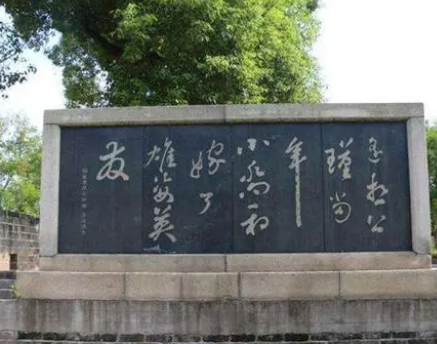 遥想公
瑾當
年
小喬初
嫁了
雄姿英
发